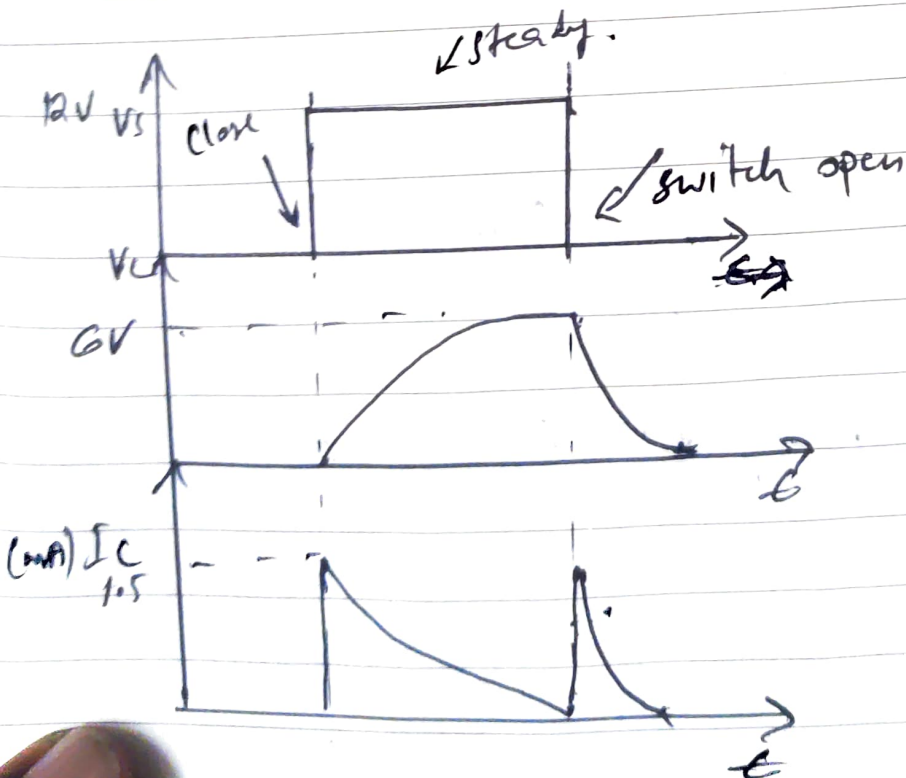 steady.
12V Vs
Close
switch open
Vc
6V
t
(mA) Ic
1.5
t